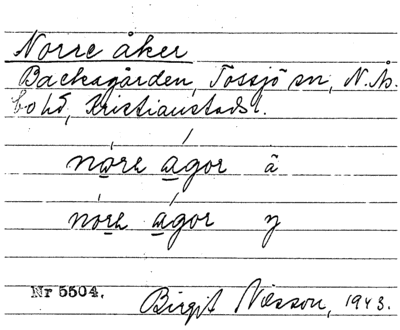 Norre åker
Backagården, Tossjö sn, N. Åsbo hd, Kristianstads l.
nǫrə ągor ä
nǫrə ągor y
Nr 5504. Birgit Nilsson, 1943.